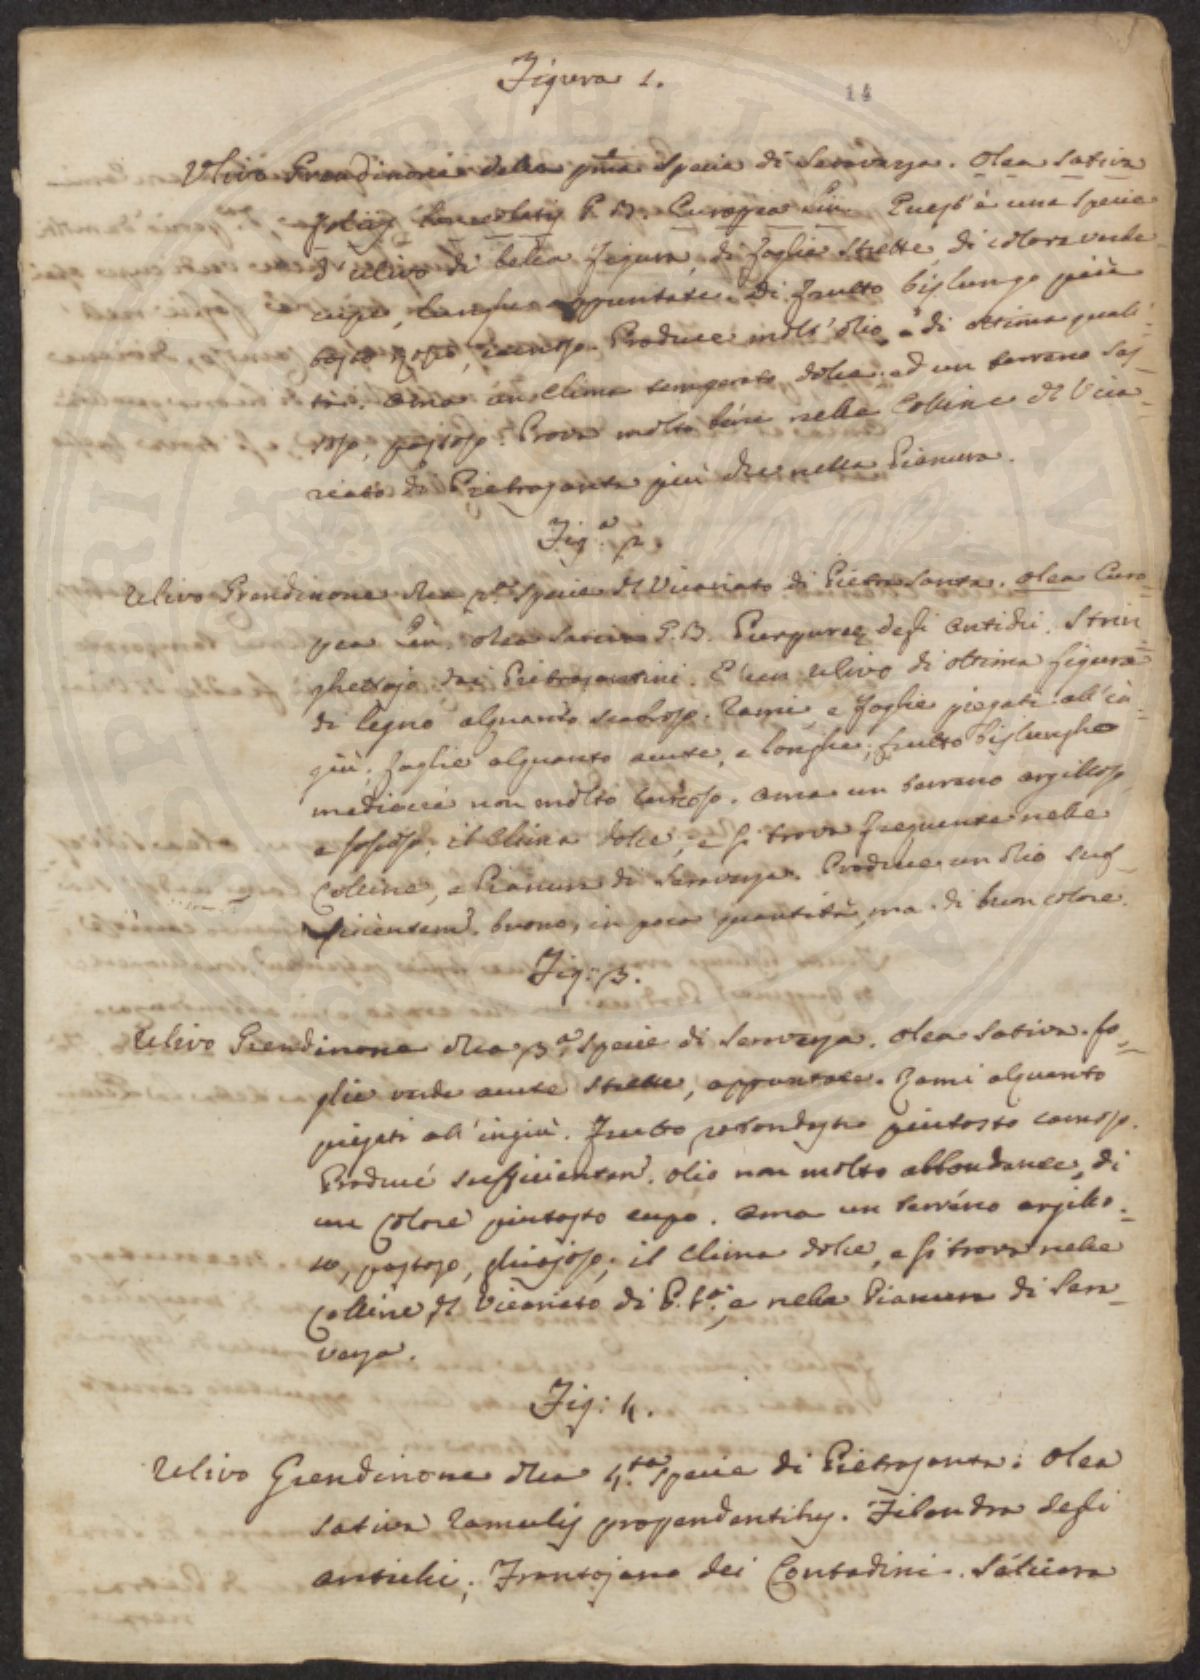 Figura 1.
14
Ulivo Grendinone della pma specie di Seraveza. Olea sativa
folijs lanceolatis P. B. Europea Lin. Quest'è una specie
d'ulivo di bella figura, di foglie strette, di colore verde
cupo, lunghe appuntate. Di frutto bislungo più
tosto, carnoso. Produce molt'olio, e di ottima quali-
tà. Ama un clima temperato, dolce, ed un terreno sas-
soso, pastoso. Prova molto bene nelle Colline del Vica-
riato di Pietrasanta più che nella Pianura.
Fig.a 2.
Ulivo Grendinone della 2.da specie del Vicariato di Pietra Santa. Olea Euro-
pea Lin. olea sativa P. B. degli Antichi. Strin-
ghettajo dai Pietrasantini. E' un ulivo di ottima figura
di legno alquanto scabroso. Rami, e foglie piegati all'in-
giù, foglie alquanto acute, e longhe; frutto bislungho
mediocre non molto carnoso. Ama un terreno argilloso,
e sassoso, il Clima dolce, e si trova frequente nelle
Colline, e Pianura di Seraveza. Produce un olio suf-
ficientem.e buono, in poca quantità, ma di buon colore.
Fig: 3.
Ulivo Grendinone della 3.a specie di Seraveza. Olea sativa. fo-
glie verdi acute strette, appuntate. Rami alquanto
piegati all'ingiù. Frutto rotondastro piuttosto carnoso.
Produce sufficientem.e olio non molto abbondante, di
un colore piutosto cupo. Ama un terreno argillo-
so, pastoso, ghiajoso; il Clima dolce, e si trova nelle
Colline del Vicariato di P. S.a, e nella Pianura di Sera-
veza.
Fig: 4.
Ulivo Grendinone della 4.ta specie di Pietrasanta: Olea
sativa Ramulis propendentibus. Filandra degli
antichi; Frantojana dei Contadini.